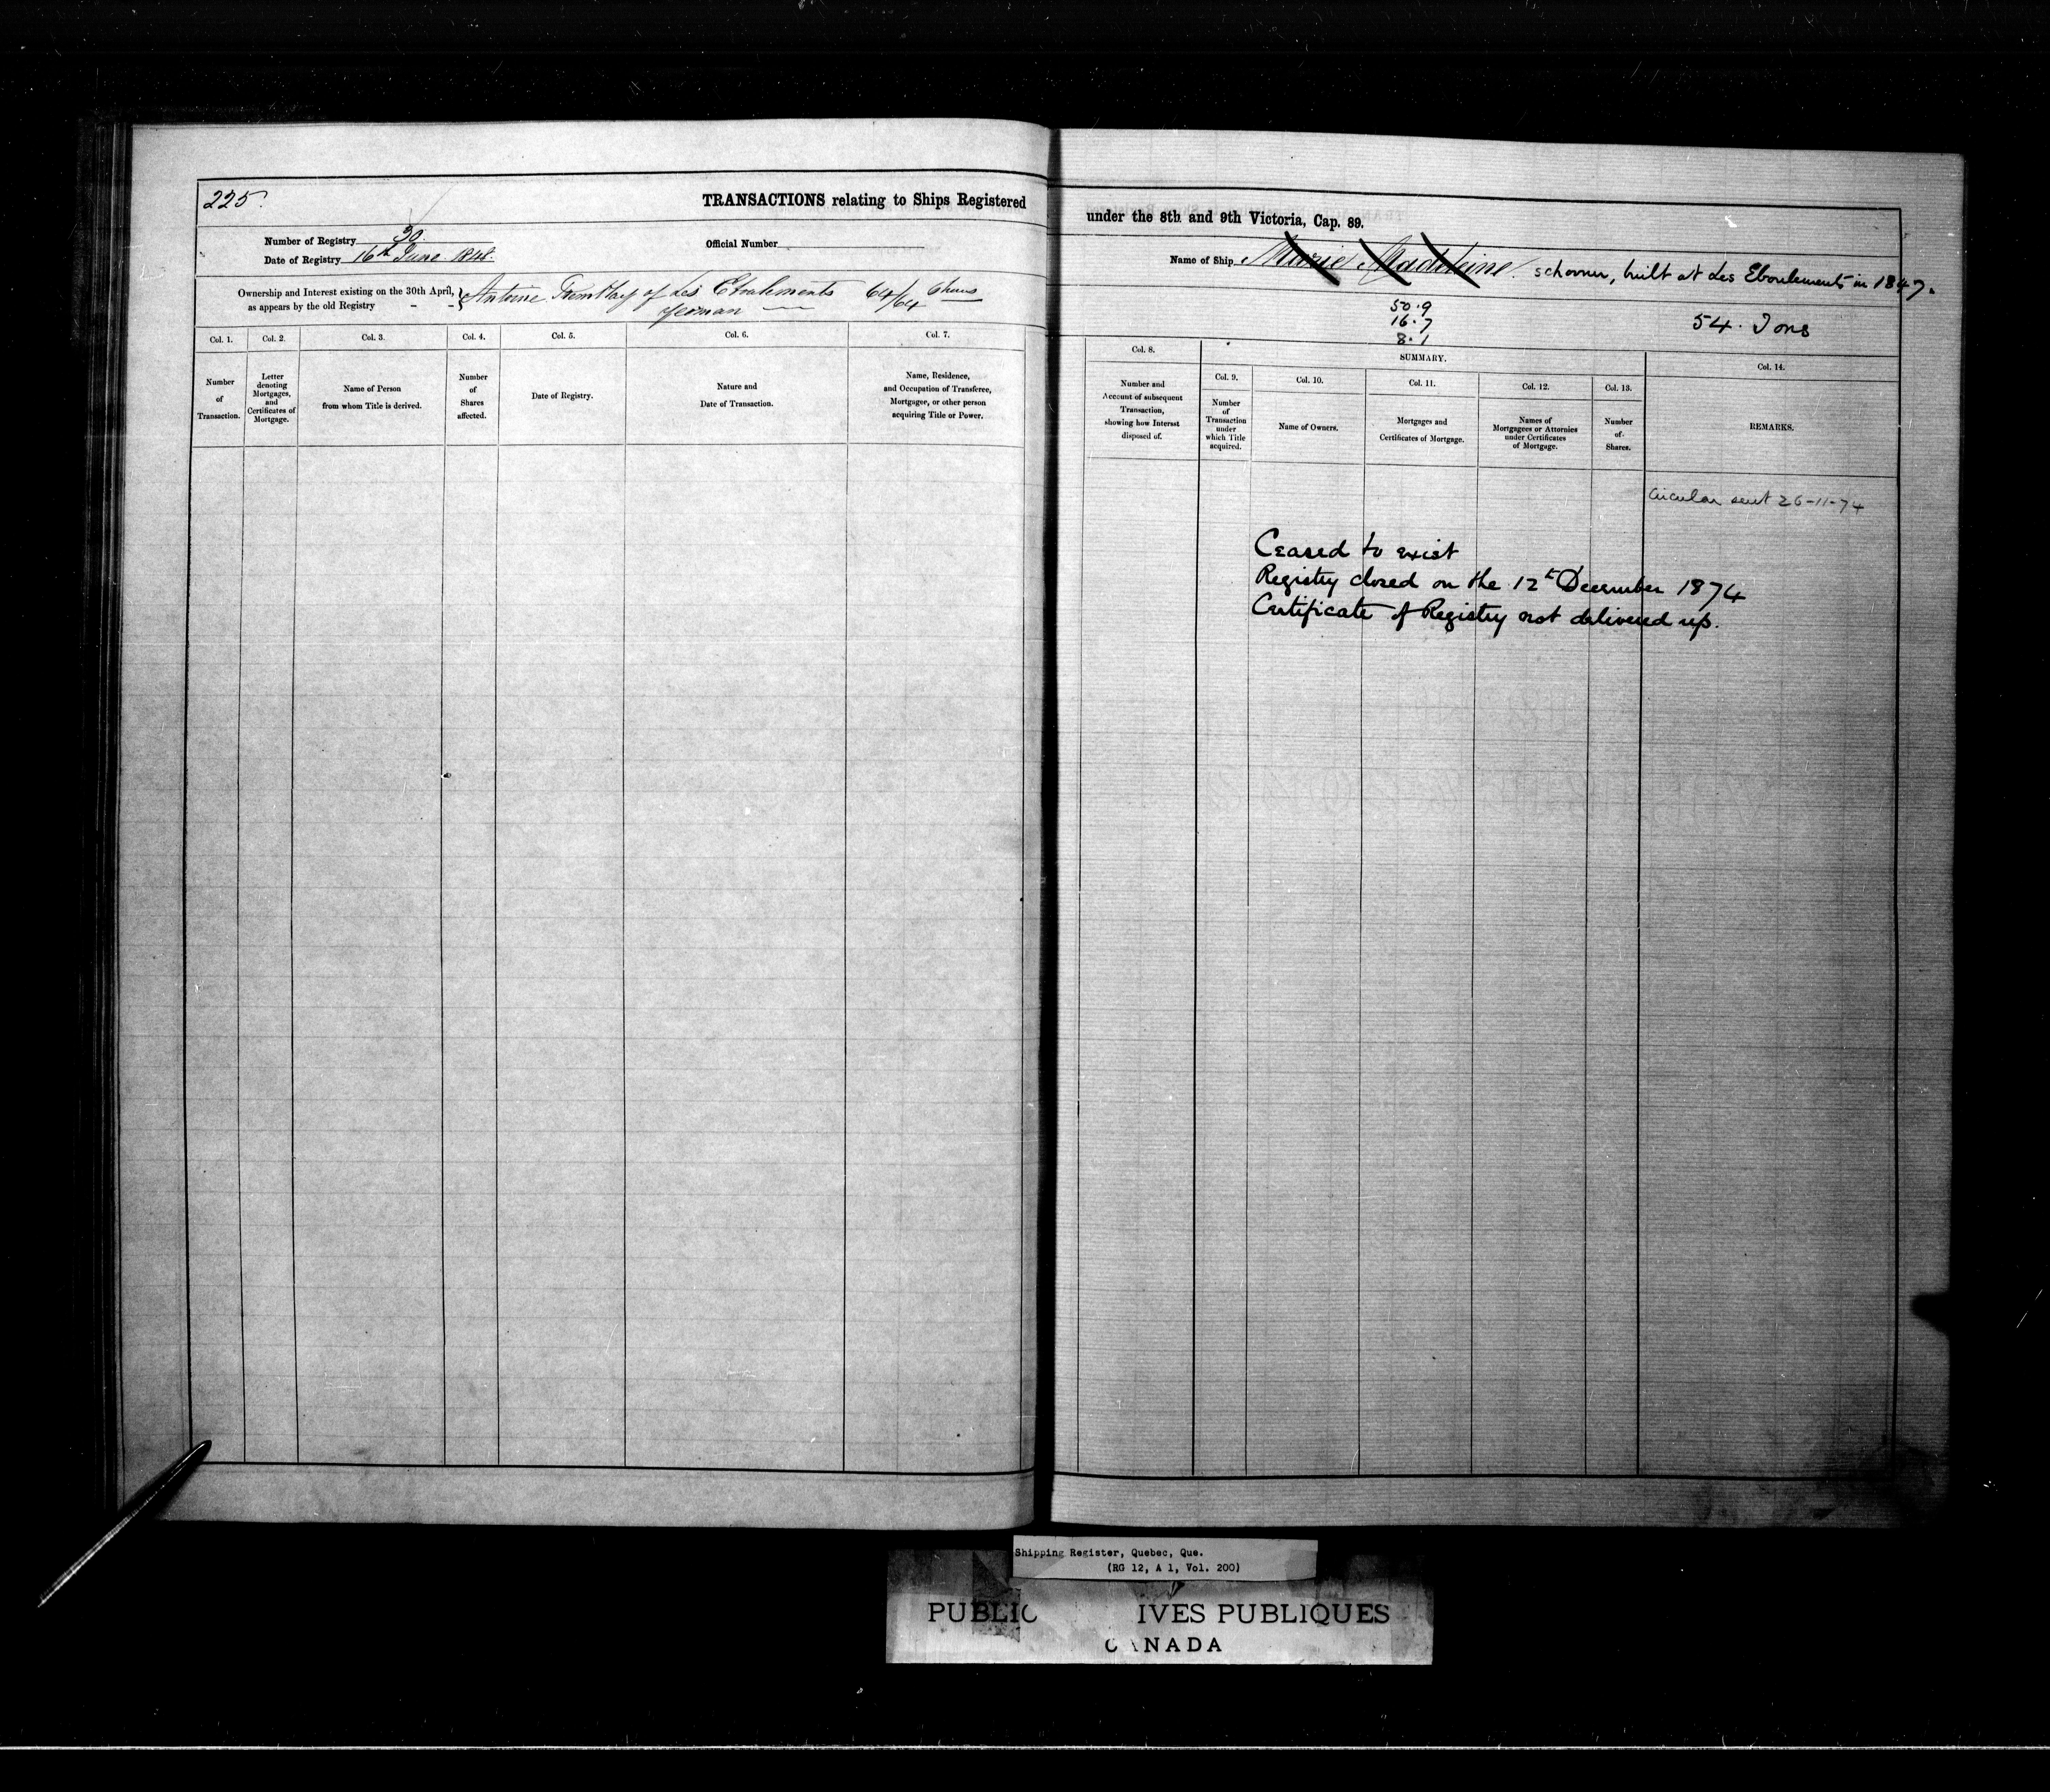 225.
TRANSACTIONS relating to Ships Registered
Number of Registry 30.
Official Number
Date of Registry 16th June 1848.
Ownership and Interest existing on the 30th April,
as appears by the old Registry - -
Antoine Tremblay of Les Eboulements 64/64 Shares
Yeoman
Col. 1. Col. 2. Col. 3. Col. 4. Col. 5. Col. 6. Col. 7.
Number
of
Transaction.
Letter
denoting
Mortgages,
and
Certificates of
Mortgage.
Name of Person
from whom Title is derived.
Number
of
Shares
affected.
Date of Registry.
Nature and
Date of Transaction.
Name, Residence,
and Occupation of Transferee,
Mortgagee, or other person
acquiring Title or Power.
under the 8th and 9th Victoria, Cap. 89.
Name of Ship Marie Madeleine. schooner, built at Les Eboulements in 1847.
50.9
16.7
8.1
54. Tons
Col. 8.
SUMMARY.
Col. 9. Col. 10. Col. 11. Col. 12. Col. 13. Col. 14.
Number and
Account of subsequent
Transaction,
showing how Interest
disposed of.
Number
of
Transaction
under
which Title
acquired.
Name of Owners.
Mortgages and
Certificates of Mortgage.
Names of
Mortgagees or Attornies
under Certificates
of Mortgage.
Number
of
Shares.
REMARKS.
Circular sent 26-11-74
Ceased to exist
Registry closed on the 12th December 1874
Certificate of Registry not delivered up.
Shipping Register, Quebec, Que.
(RG 12, A 1, Vol. 200)
PUBLIC IVES PUBLIQUES
CANADA